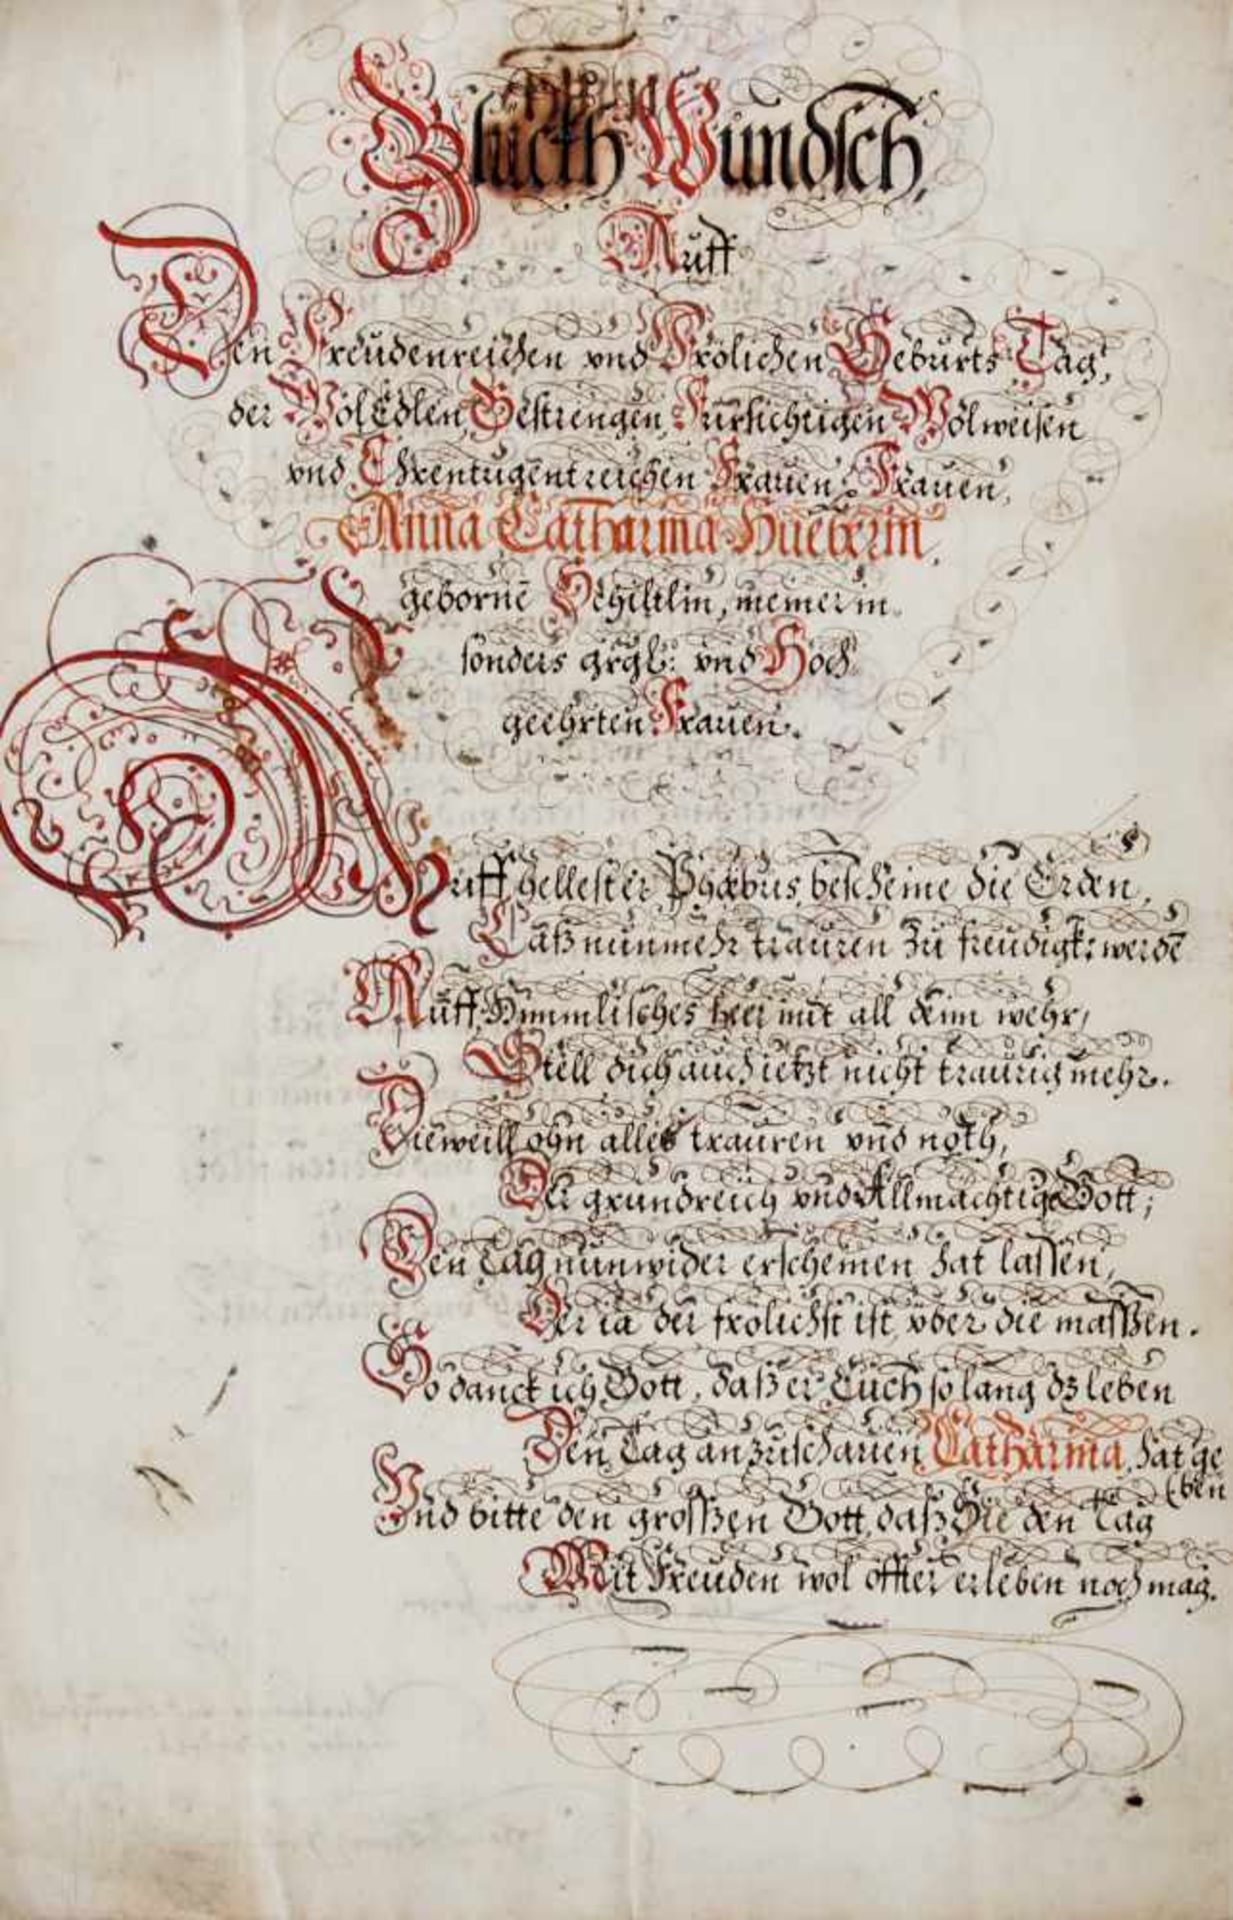 Glückh Wundsch,
Auff
Den Freudenreichen vnd Frölichen Geburts Tag,
der Wol Edlen, Gestrengen, Fürsichtigen Wolweisen
vnd Ehrentugentreichen Frauen, Frauen,
Anna Catharina Hueberin,
geborne Schiltlin, meiner in
sonders grgl: vnd Hoch
geehrten Frauen.
Auff hellester Phœbus, bescheine die Erden,
Laß nunmehr trauren zu freudigk: werdē
Auff Himmlisches heer mit all deim wehr,
Stell dich auch ietzt nicht traurig mehr.
Dieweill ohn alles trauren vnd noth,
Der grundreich vnd Allmächtige Gott;
Den Tag nun wider erscheinen hat lassen,
Der ia der frölichst ist vber die massßen.
So danck ich Gott, daß er Euch so lang dz leben
Den Tag anzuschauen Catharina, hat ge
(ben
Vnd bitte den grossßen Gott, daß Sie den Tag
Mit Freuden wol öffter erleben noch mag.